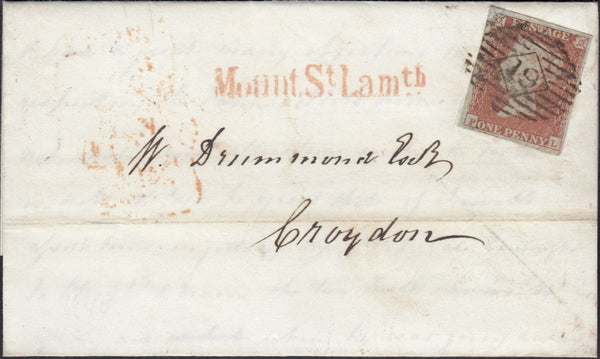 Mount St Lamth
POSTAGE
19
P ONE PENNY L
W. Drummond Esqr
Croydon